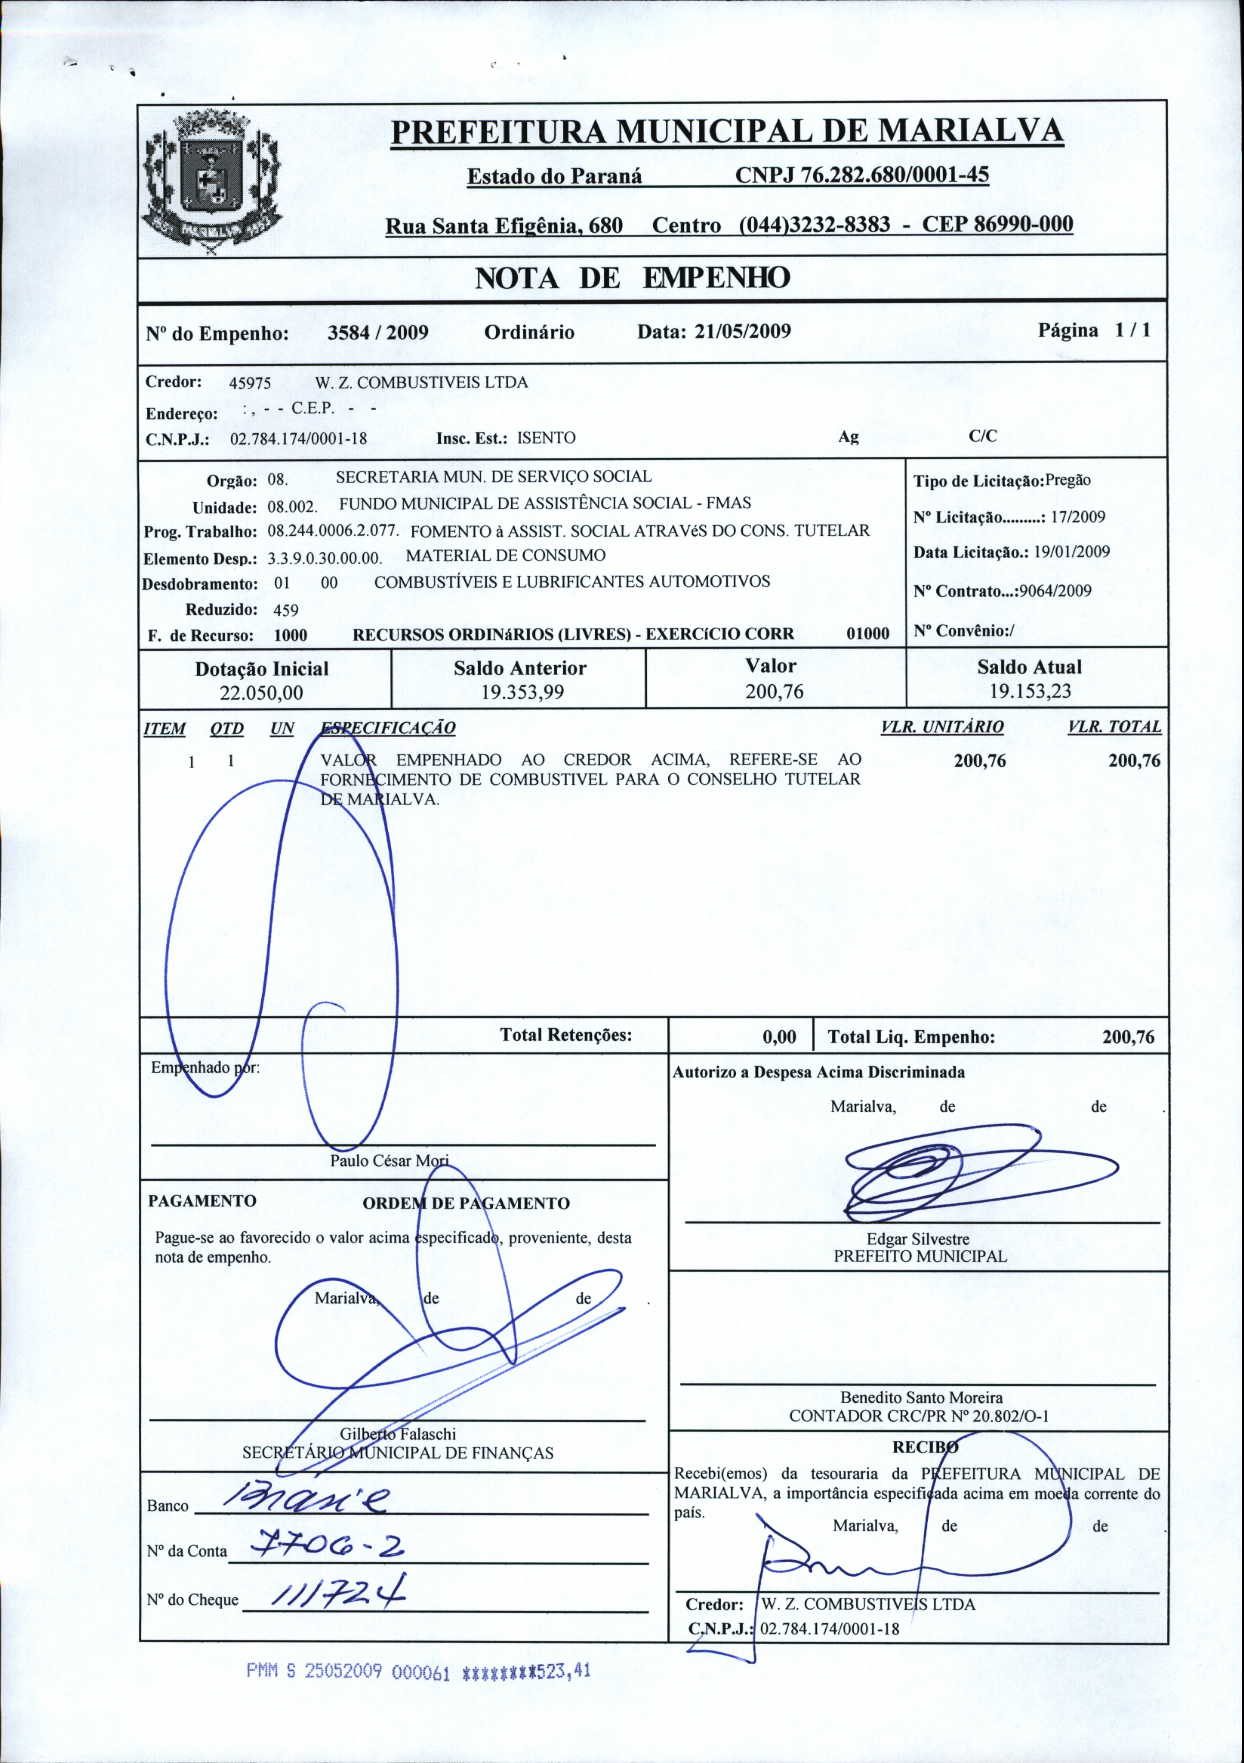 PREFEITURA MUNICIPAL DE MARIALVA
Estado do Paraná CNPJ 76.282.680/0001-45
Rua Santa Efigênia, 680 Centro (044)3232-8383 - CEP 86990-000
MARIALVA
NOTA DE EMPENHO
Nº do Empenho: 3584 / 2009 Ordinário Data: 21/05/2009 Página 1 / 1
Credor: 45975 W. Z. COMBUSTIVEIS LTDA
Endereço: : , - - C.E.P. - -
C.N.P.J.: 02.784.174/0001-18 Insc. Est.: ISENTO Ag C/C
Orgão: 08. SECRETARIA MUN. DE SERVIÇO SOCIAL
Unidade: 08.002. FUNDO MUNICIPAL DE ASSISTÊNCIA SOCIAL - FMAS
Prog. Trabalho: 08.244.0006.2.077. FOMENTO à ASSIST. SOCIAL ATRAVéS DO CONS. TUTELAR
Elemento Desp.: 3.3.9.0.30.00.00. MATERIAL DE CONSUMO
Desdobramento: 01 00 COMBUSTÍVEIS E LUBRIFICANTES AUTOMOTIVOS
Reduzido: 459
F. de Recurso: 1000 RECURSOS ORDINáRIOS (LIVRES) - EXERCíCIO CORR 01000
Tipo de Licitação:Pregão
Nº Licitação.........: 17/2009
Data Licitação.: 19/01/2009
Nº Contrato...:9064/2009
Nº Convênio:/
Dotação Inicial Saldo Anterior Valor Saldo Atual
22.050,00 19.353,99 200,76 19.153,23
ITEM QTD UN ESPECIFICAÇÃO VLR. UNITÁRIO VLR. TOTAL
1 1 VALOR EMPENHADO AO CREDOR ACIMA, REFERE-SE AO 200,76 200,76
FORNECIMENTO DE COMBUSTIVEL PARA O CONSELHO TUTELAR
DE MARIALVA.
Total Retenções: 0,00 Total Liq. Empenho: 200,76
Empenhado por:
Paulo César Mori
Autorizo a Despesa Acima Discriminada
Marialva, de de .
Edgar Silvestre
PREFEITO MUNICIPAL
PAGAMENTO ORDEM DE PAGAMENTO
Pague-se ao favorecido o valor acima especificado, proveniente, desta
nota de empenho.
Marialva, de de .
Gilberto Falaschi
SECRETÁRIO MUNICIPAL DE FINANÇAS
Benedito Santo Moreira
CONTADOR CRC/PR Nº 20.802/O-1
Banco Brasil
Nº da Conta 7706-2
Nº do Cheque 111724
RECIBO
Recebi(emos) da tesouraria da PREFEITURA MUNICIPAL DE
MARIALVA, a importância especificada acima em moeda corrente do
país.
Marialva, de de .
Credor: W. Z. COMBUSTIVEIS LTDA
C.N.P.J.: 02.784.174/0001-18
PMM S 25052009 000061 ********523,41